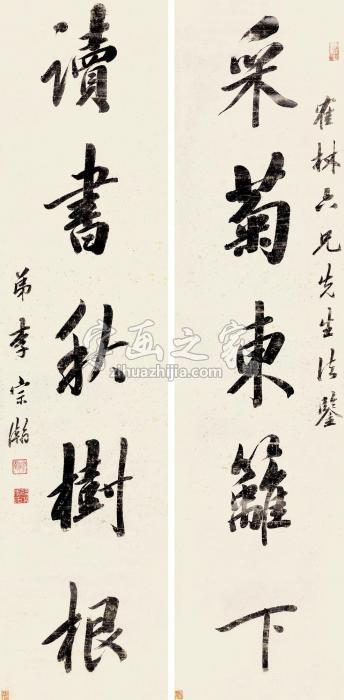 雀林六兄先生法鑒
采菊東籬下
讀書秋樹根
弟李宗瀚
字画之家
zihuazhijia.com